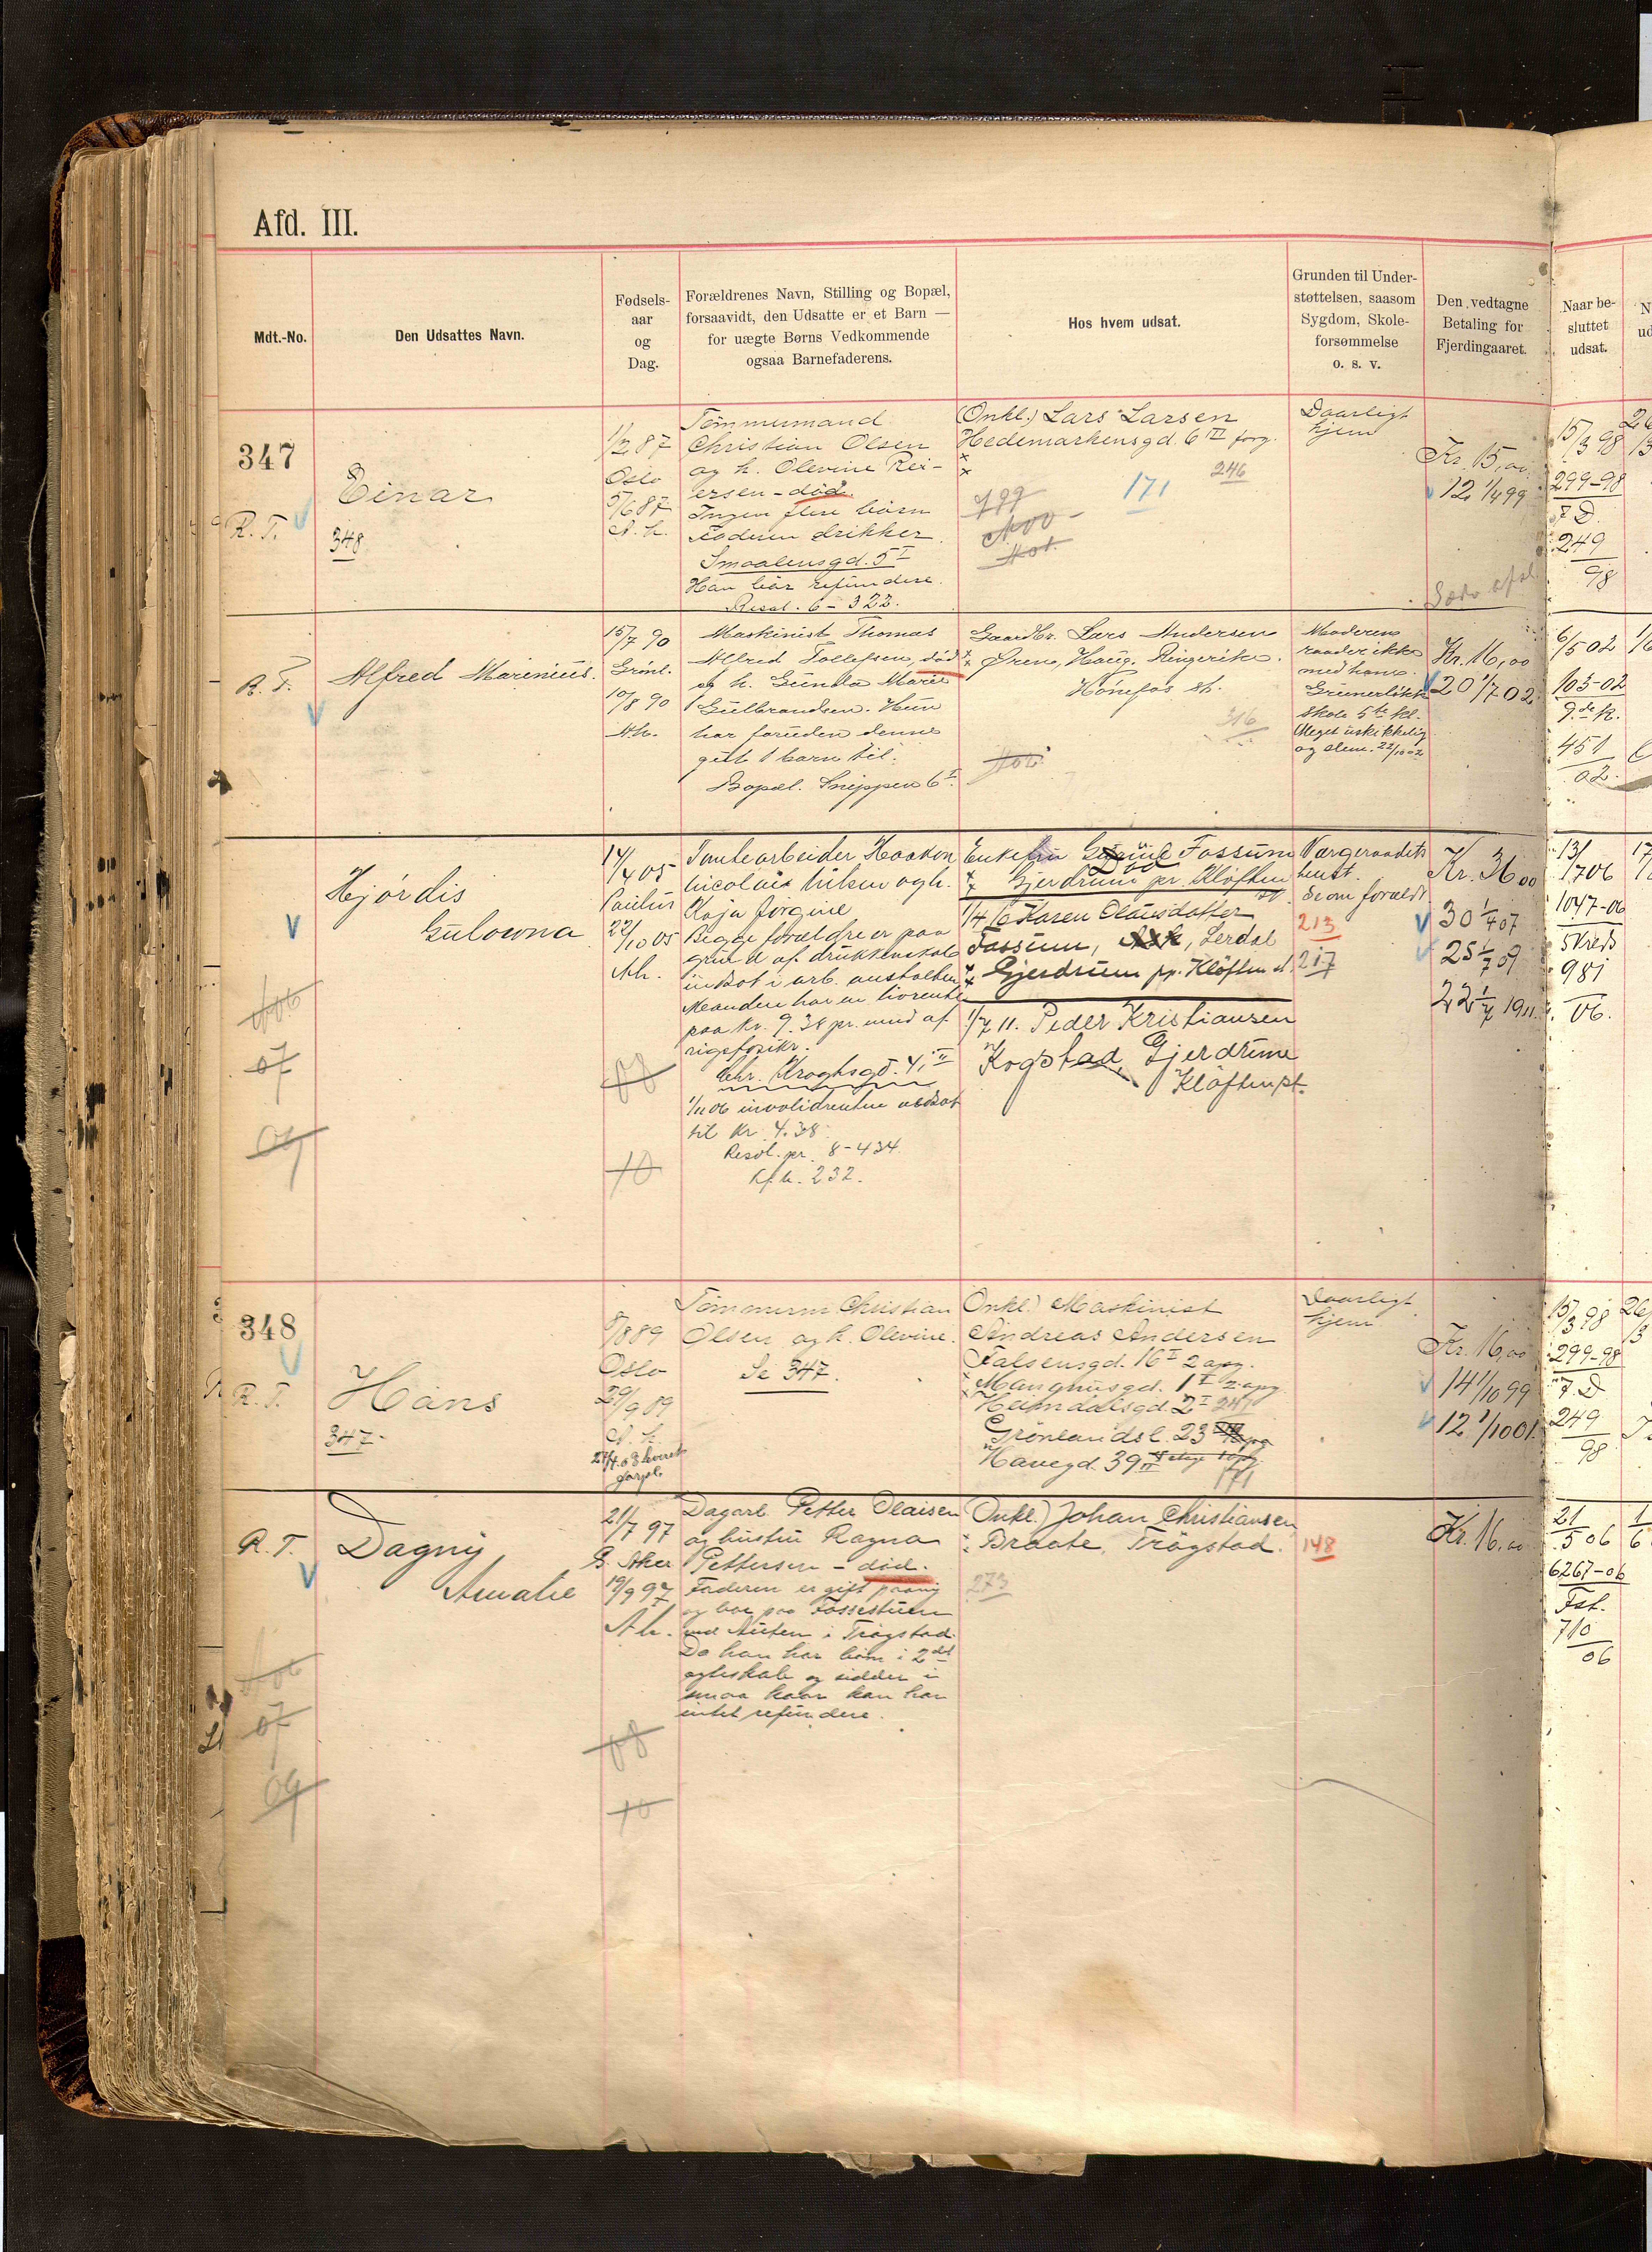 Afd. III.
Mdt.-No.
Den Udsattes Navn.
Fødsels-
aar
og
Dag.
Forældrenes Navn, Stilling og Bopæl,
forsaavidt, den Udsatte er et Barn —
for uægte Børns Vedkommende
ogsaa Barnefaderens.
Hos hvem udsat.
Grunden til Under-
støttelsen, saasom
Sygdom, Skole-
forsømmelse
o. s. v.
Den vedtagne
Betaling for
Fjerdingaaret.
Naar be-
sluttet
udsat.
347
R. T.
Einar
348
1/2 87
Oslo
5/6 87
A. k.
Tømmermand
Christian Olsen
og h. Olevine Rei-
ersen - død.
Ingen flere børn
Faderen drikker.
Smaalensgd. 5 I
Han bør refundere.
Resol. 6 - 322.
(Onkl.) Lars Larsen
Hedemarkensgd. 6 II forg.
246
171
Daarligt
hjem
Kr. 15,00
12 1/4 99
15/3 98
299-98
7 D.
249
98
R. T.
Alfred Marinius.
15/7 90
Grønl.
10/8 90
A.k.
Maskinist Thomas
Alfred Tollefsen, død
og h. Gunda Marie
Gulbrandsen. Hun
har foruden denne
git 1 barn til.
Bopæl. Snippen 6 I.
Gaardbr. Lars Andersen
Øren, Haug, Ringerike.
Hønefos st.
316
Moderen
raader ikke
med ham.
Grünerløkk
Skole 5te kl.
Meget uskikkelig
og slem. 22/10 02
Kr. 16,00
20 1/7 02
6/5 02
103-02
9.de k.
451
02.
Hjørdis
Gulowna
14/4 05
Paulus
22/10 05
A.k.
Tomtearbeider Haakon
Nicolai Nilsen og h.
Kaja Jørgine
Begge forældre er paa
grund af drukkenskab
indsat i arb. anstalten
Manden har en livrente
paa Kr. 9.38 pr. mnd af
rigsforsikr.
Chr. Kroghsgd. 4, II
1/11 06 invalidrenten nedsat
til Kr 4.38.
Resol. pr. 8-434
Enkefru Fossum
Død
Gjerdrum pr. Kløften
st.
1/4 Karen Olausdatter
Fossum, Ask, Lerdal
Gjerdrum pr. Kløften st.
1/7 11. Peder Kristiansen
Kogstad, Gjerdrum
Kløften pt.
Værgeraadets
henst.
Se om forældr.
213
217
Kr. 36,00
30 1/4 07
25 1/7 09
22 1/7 1911
13/
1706
1047-06
5Kreds
981
06.
07
09
08
10
348
R. T.
Hans
347
8/8 89
Oslo
29/9 89
A. k.
Tømmerm. Christian
Olsen og h. Olevine.
Se 347.
Onkl.) Maskinist
Andreas Andersen
Falsensgd. 16 I 2 opg.
Mangnusgd. 1 I 2 opg
Heimdalsgd. 2 I
Grønlandsl. 23
Havegd. 39 II
171
Daarligt
hjem
Kr. 16,00
14 1/10 99
12 1/10 01.
15/3 98
299-98
7. D
249
98
R. T.
Dagny
Amalie
21/7 97
Ø. Aker
19/9 97
A k.
Dagarb. Petter Olaisen
og hustru Ragna
Pettersen - død.
Faderen er gift paany
og bor paa Fossestuen
ved Auten i Trøgstad.
Da han har børn i 2det
egteskab og sidder i
smaa kaar kan han
intet refundere.
Onkl.) Johan Christiansen
Braate, Trøgstad.
273
148
Kr. 16,00
21
5 06
6267-06
Fat.
710
06
07
09
08
10